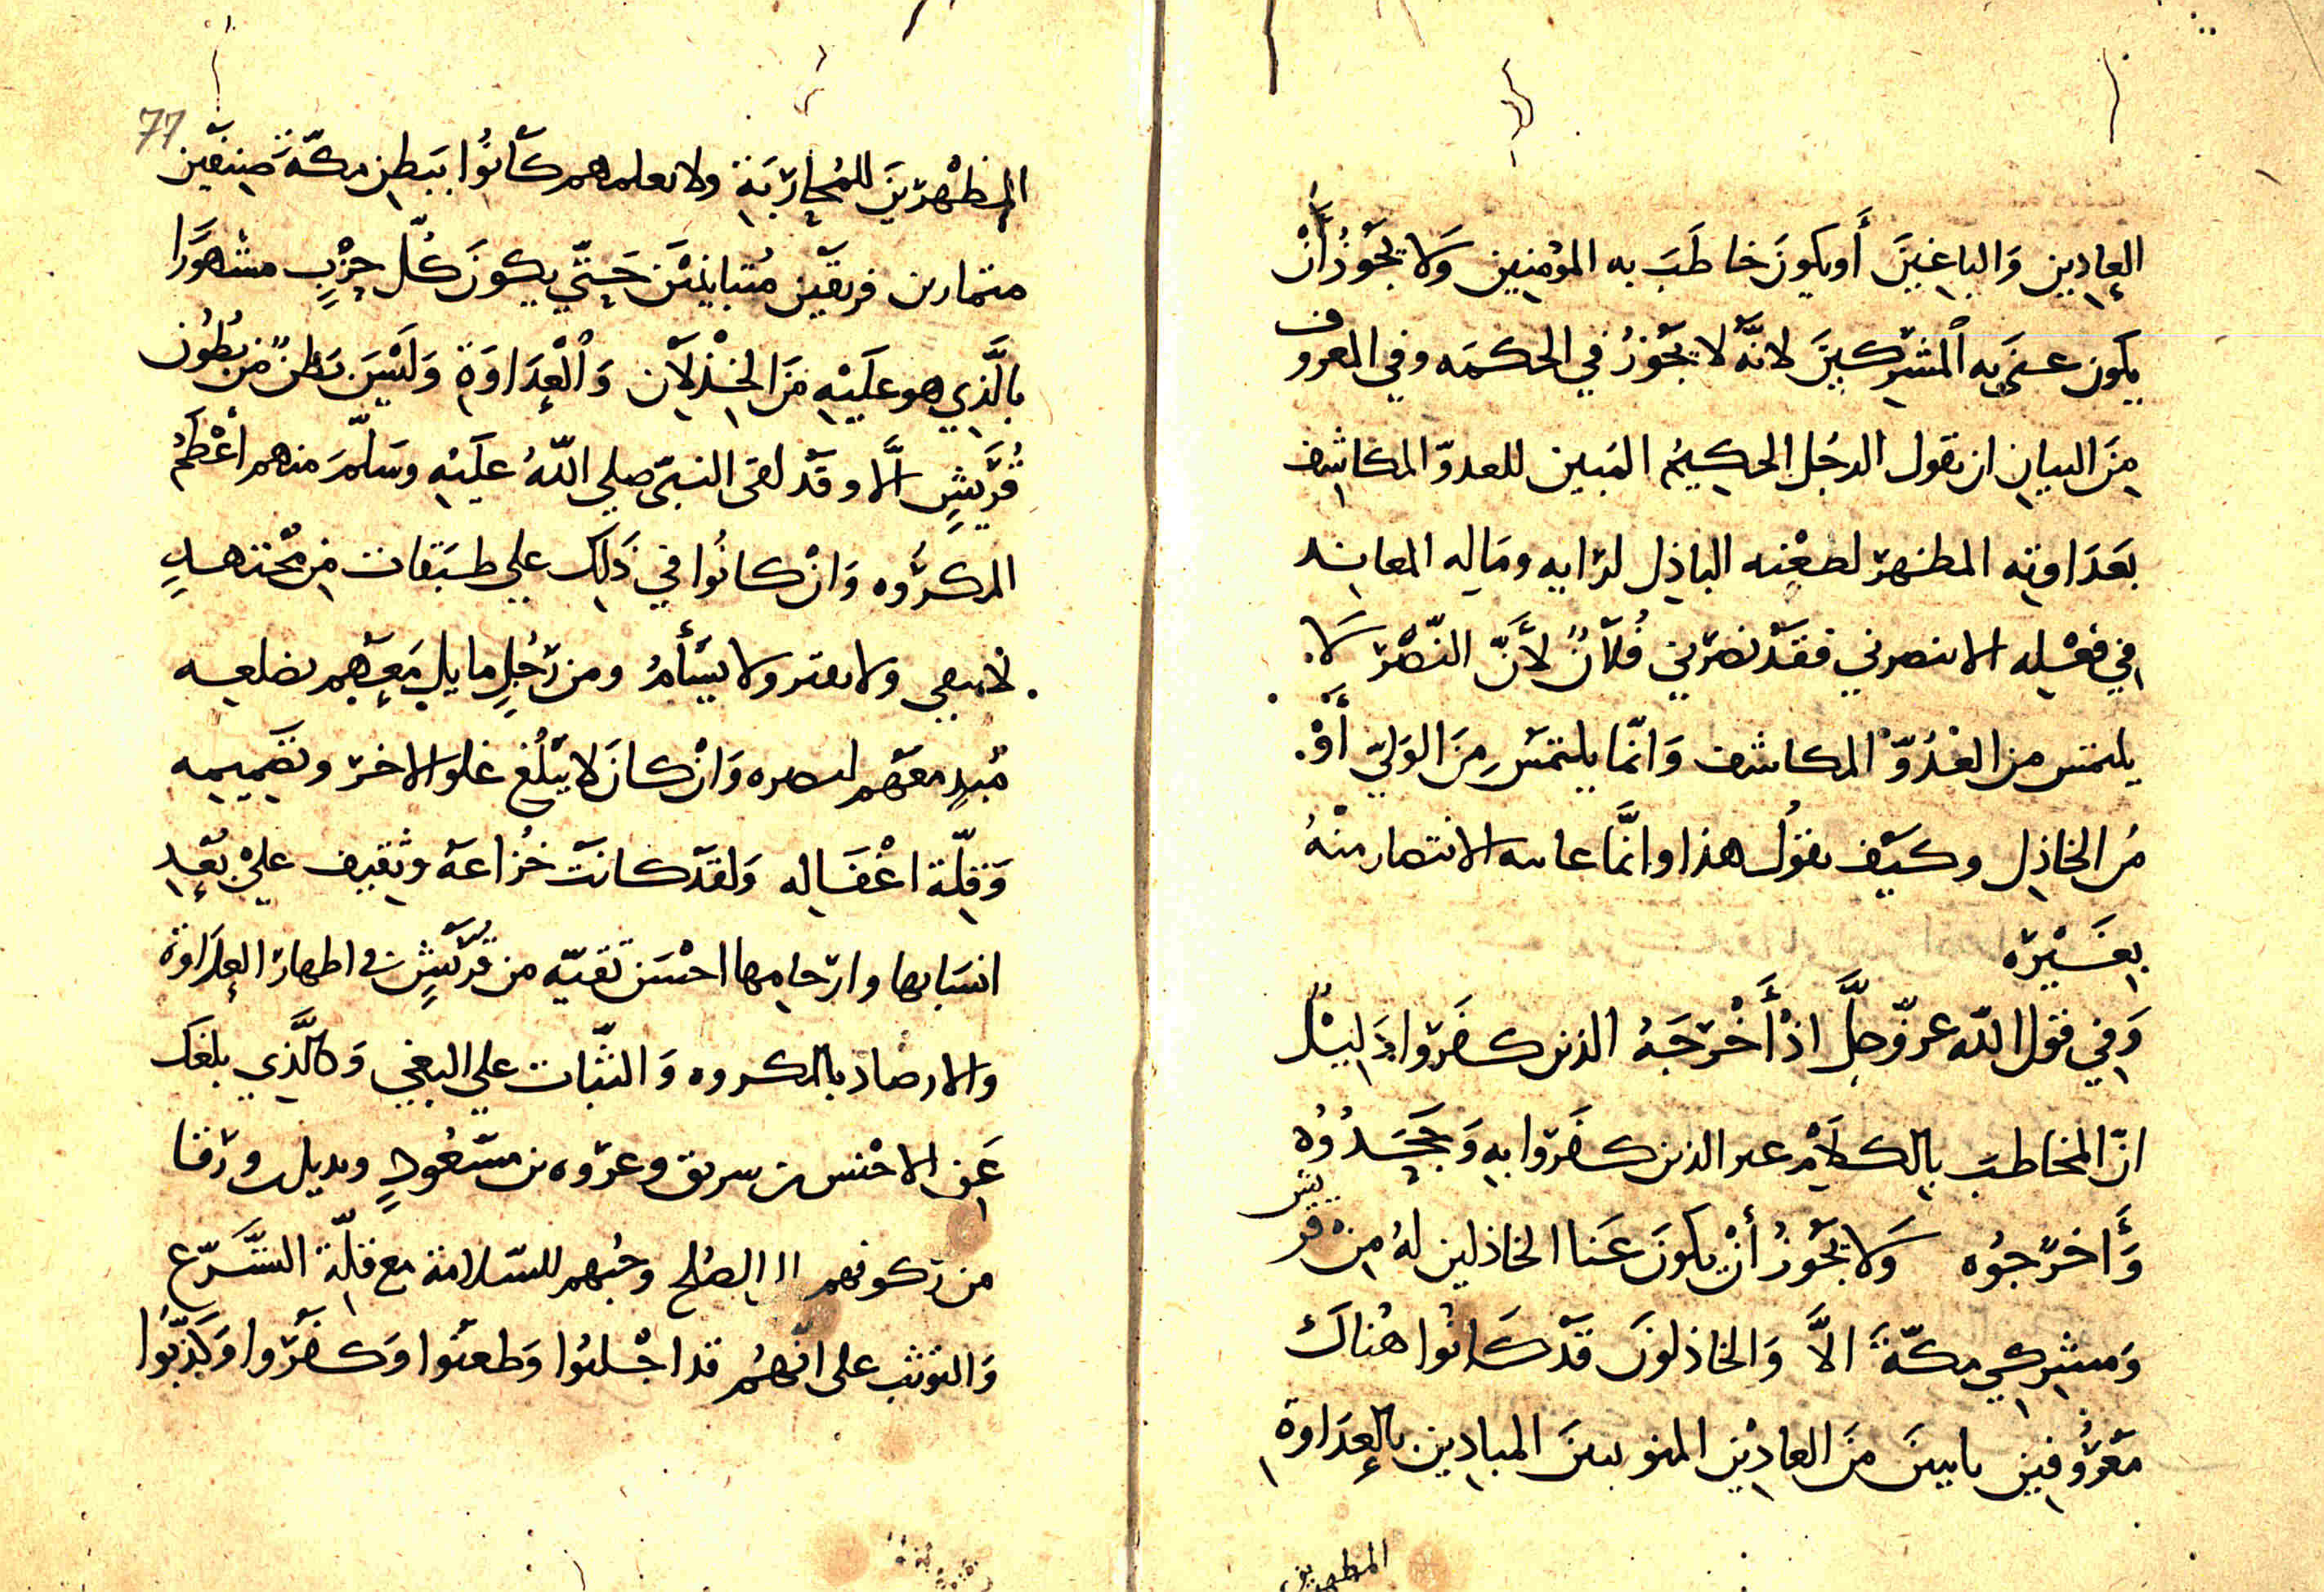 العادِين وَالباغِينَ أَو يكونَ خاطَبَ به المؤمِنِين وَلا يَجُوزُ أَنْ
يكون عنَى به المُشْرِكينَ لانَّهُ لا يَجُوزُ في الحكمَه وفي المعروف
مِنَ البيانِ ان يقول الرجُل الحكِيمُ المُبِين للعدوّ المكاشِف
بعَدَاوتِه المظهر لطعْنِه الباذِلِ لرَايه ومَالِه المعانِد
في فِعْلِه الا تنصرني فقَدْ نصَرَني فُلَانٌ لأَنَّ النّصْرَ لا
يلتمس من العَدُوّ المكاشف وَانّما يلتمَسُ مِنَ الوَليّ أَوْ
مِن الخاذِل وكيْف يقُولُ هذا وانَّما غايته الانتصار منْهُ
بِغَيْرِه
وَفي قول اللّه عزّ وجلَّ اذْ أَخْرَجَهُ الذين كفَرُوا دَليْلٌ
انّ المخاطبَ بالكلَامِ غير الذين كفَرُوا بِهِ وَجَحَدُوُه
وَأَخرَجُوُه وَلا يَجُوزُ أنْ يكونَ عَنا الخاذلين لهُ مِنْ قريش
وَمشركي مكّةَ الاَّ وَالخاذلونَ قَدْ كَانُوا هُناكَ
معْرُوفِين بايينَ مَنَ العادِيْنِ المبادِين بالعدَاوة
المظهرين
77
المظْهرِينَ للمُحارَبَةِ ولا نعلمهم كَانُوا ببَطنِ مكّةَ صِنفَين
متمايزين فريقَين مُتبَاينَيْن حَتيّ يكونَ كُلّ حِزْبٍ مشهورًا
بالَّذِي هو عَلَيْهِ مَنَ الخِذْلَانِ وَالْعدَاوَةِ وَلَيْسَ بَطنٌ مِّن بُطُون
قُرَيْشٍ الَّا وقَدْ لقى النبيّ صلي اللّهُ عليْهِ وسَلّمَ منهم أعْظَمُ
المكرُوه وَانْ كانُوا في ذَلك علي طبَقات مِن مُجْتهدٍ
لا يبقي ولا يفتر ولا يَسْأَمُ ومن رَجُلٍ مايلٍ مَعَهم بضلعه
مُبدٍ معَهم لنصره وَانْ كانَ لا يَبْلُغ غلو الاخر وتصميمه
وَقِلّة اغْفَالِه وَلقدْ كانَتْ خُزاعَة وثقِيف عليْ بُعْدِ
انسَابها وارحامِها احْسَن تَقيّه من قُرَيْشٍ في اظهار العدَاوة
والارصاد بالمكروه وَالثّبات علي البغي وَكالَّذي بلغك
عَنِ الاخْنس بن سريق وعرْوه بن مسْعُودٍ وبديل ورقا
من ركونهم الي الصُلح وحُبهم للسّلامة مع قلّة التَّسَرّع
وَالتوثب على انّهُم قد اجْلبُوا وَطعَنُوا وَكفَرُوا وَكَذّبُوا